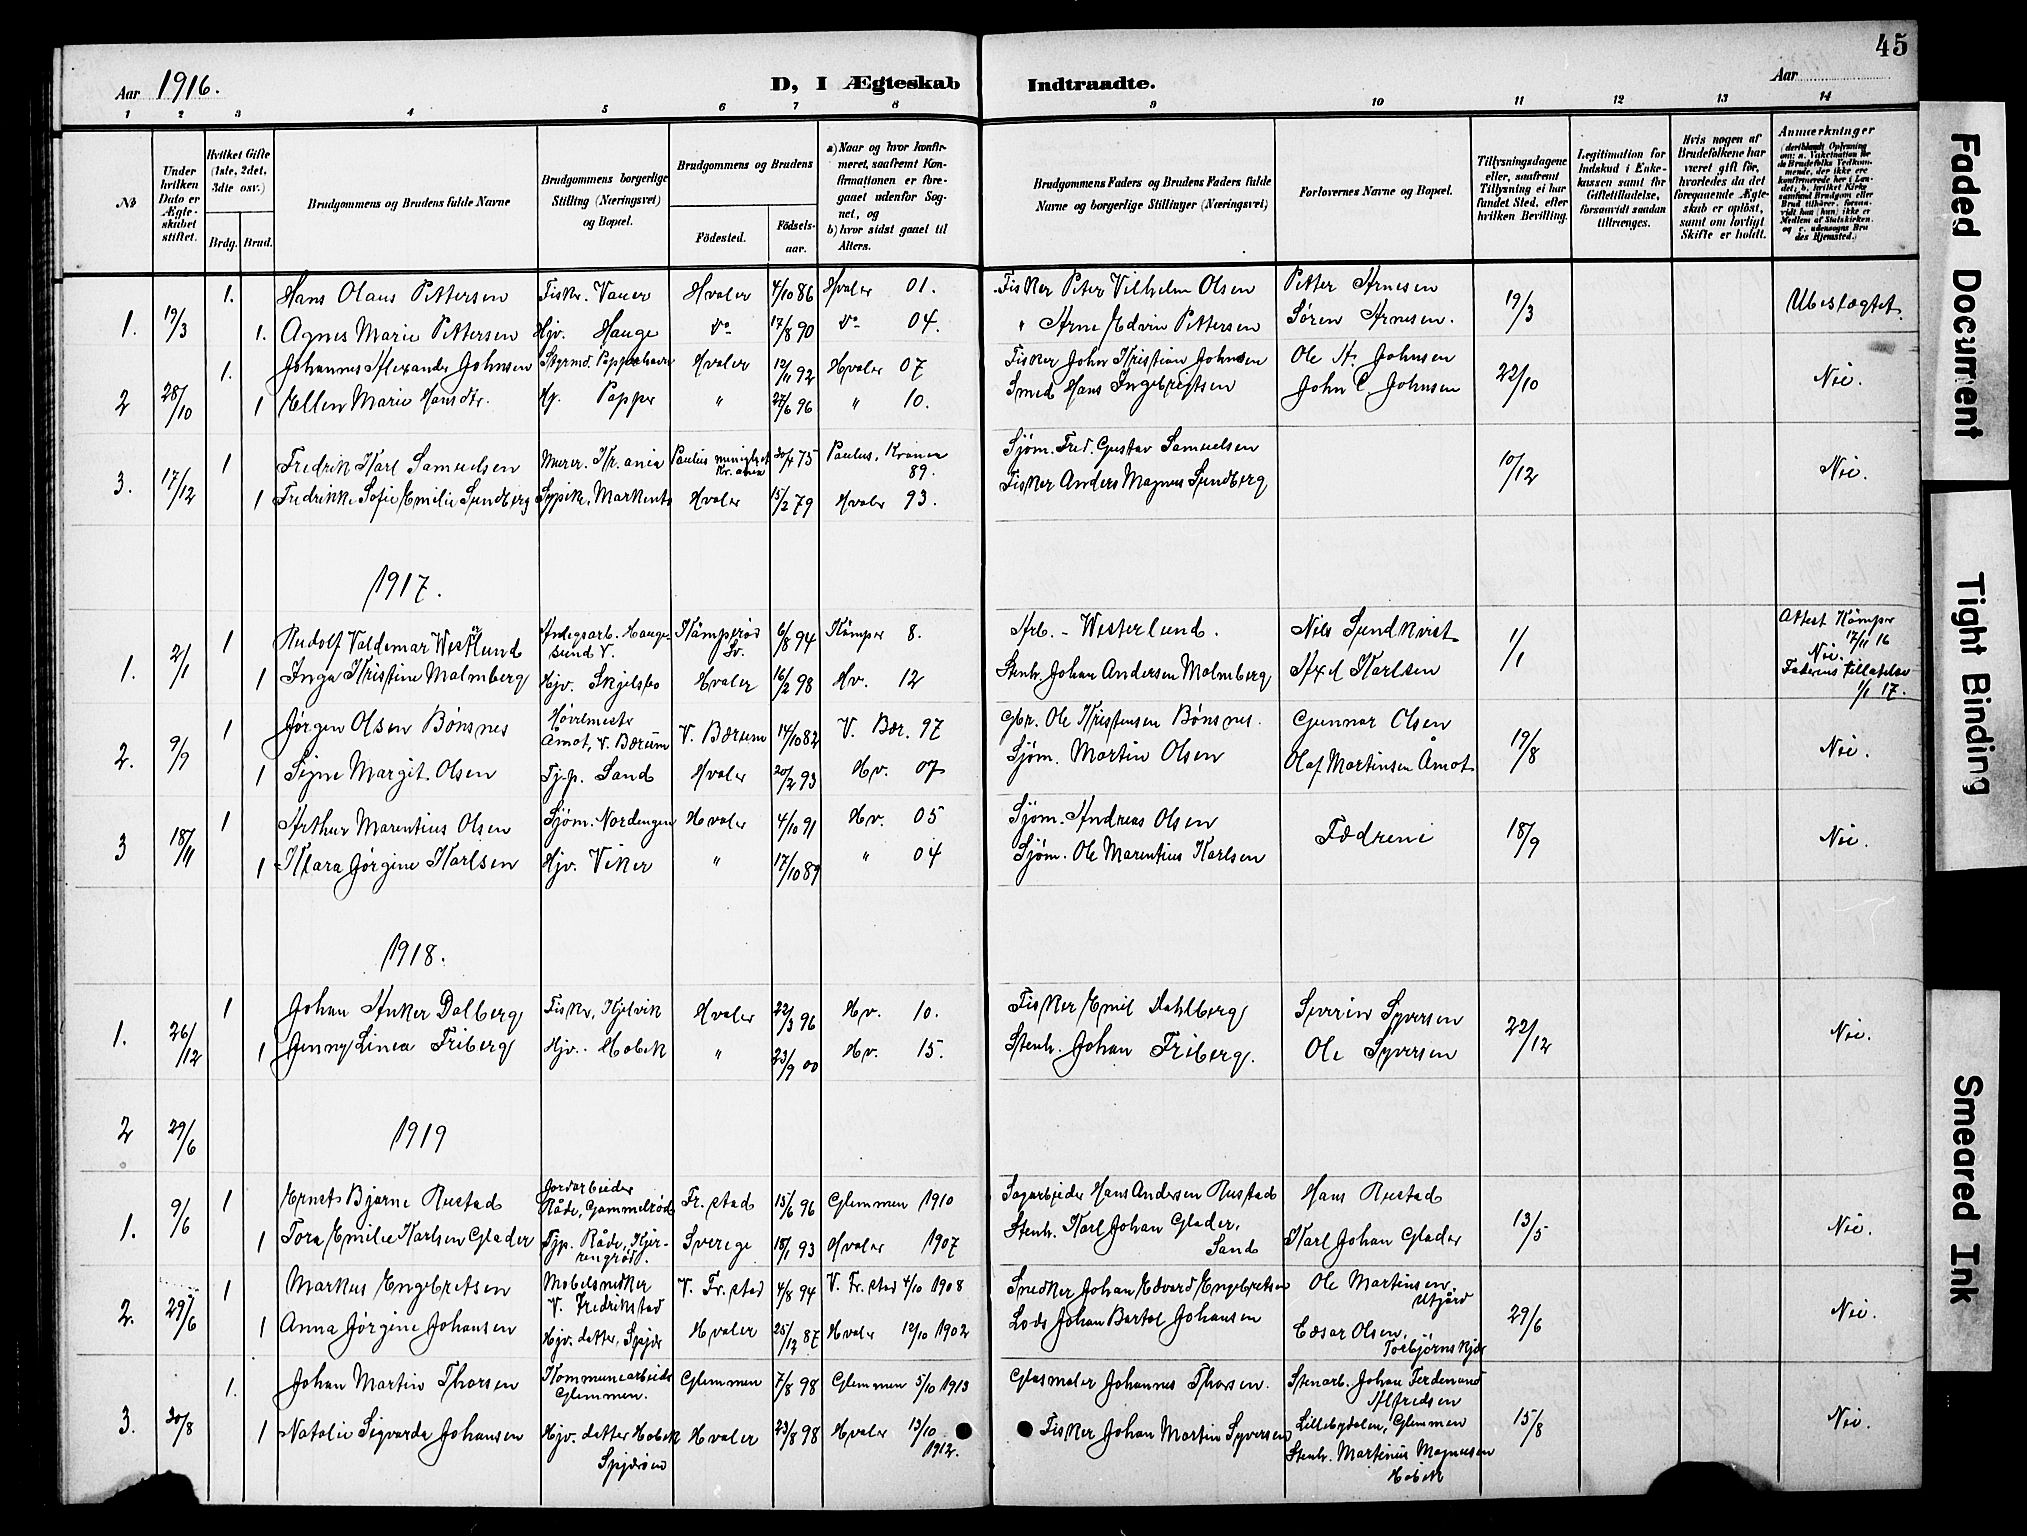 45
Aar 1916.
D, I Ægteskab Indtraadte.
Aar
1 2 3 4 5 6 7 8 9 10 11 12 13 14
№
Under hvilken Dato er Ægteskabet stiftet.
Hvilket Gifte (1ste, 2det, 3dte osv.)
Brdg. Brud.
Brudgommens og Brudens fulde Navne
Brudgommens borgerlige Stilling (Næringsvei) og Bopæl.
Brudgommens og Brudens
Födested. Födselsaar.
a) Naar og hvor konfirmeret, saafremt Konfirmationen er foregaaet udenfor Sognet, og
b) hvor sidst gaaet til Alters.
Brudgommens Faders og Brudens Faders fulde Navne og borgerlige Stillinger (Næringsvei)
Forlovernes Navne og Bopæl.
Tillysningsdagene eller, saafremt Tillysning ei har fundet Sted, efter hvilken Bevilling.
Legitimation for Indskud i Enkekassen samt for Giftetilladelse, forsaavidt saadan tiltrænges.
Hvis nogen af Brudefolkene har været gift för, hvorledes da det foregaaende Ægteskab er oplöst, samt om lovligt Skifte er holdt.
Anmærkninger
1. 19/3 1. Hans Olaus Pettersen Fisker. Vauer Hvaler 4/10 86 Hvaler 01. Fisker Peter Vilhelm Olsen Petter Arnesen 19/3 Ubeslægtet.
1. Agnes Marie Pettersen Hjv. Hauge Do 17/8 90 Do 04. " Arne Edvin Pettersen Søren Arnesen.
2 28/10 1. Johannes Alexander Johnsen Papperhavn Hvaler 12/11 92 Hvaler 07 Fisker John Kristian Johnsen Ole A. Johnsen 22/10 Nei.
1 Ellen Marie Hansdtr. Hj. Papper " 27/6 96 " 10. Smed Hans Ingebrigtsen John C. Johnsen
3. 17/12 1 Fredrik Karl Samuelsen Murer. Kr.ania Paulus menighet Kr.ania 20/4 75 Paulus, Krania 89. Sjøm. Fred. Gustav Samuelsen 10/12 Nei.
1 Fredrikke Sofie Emilie Sundberg Sypik, Hvaler 15/2 79 Hvaler 93. Fisker Anders Magnus Sundberg
1917.
1. 2/1 1 Rudolf Valdemar Westerlund Anlegsarb. Haugesund V. Kämperöd Sv. 6/8 94 Kämper 8. Arb. - Westerlund. Nils Sundkvist 1/1 Attest Kämper 17/11 16 Nei. Faderens tilladelse 1/1 17.
1 Inga Kristine Malmberg Hjv. Skjelsbo Hvaler 16/2 98 Hv. 12 Stenh. Johan Andersen Malmberg Axel Karlsen
2. 9/9 1 Jørgen Olsen Bønsnes Høvlmestr Åmot, V. Bærum V. Bærum 14/10 82 V. Bær. 97 Gbr. Ole Kristensen Bønsnes. Gunnar Olsen 19/8 Nei.
1 Signe Margit Olsen Tjp. Sand Hvaler 20/2 93 Hv. 07 Sjøm. Martin Olsen Olaf Martinsen Åmot
3 18/11 1 Arthur Marentius Olsen Sjøm. Nordengen Hvaler 4/10 91 Hv. 05 Sjøm. Andreas Olsen Fædrene 18/9 Nei.
1 Klara Jørgine Karlsen Hjv. Viker " 17/10 89 " 04 Sjøm. Ole Marentius Karlsen
1918.
1. 26/12 1 Johan Anker Dalberg Fisker, Kjelvik Hvaler 22/3 96 Hv. 10. Fisker Emil Dahlberg Severin Syversen 22/12 Nei.
1 Jenny Linea Friberg Hjv. Hobek " 23/9 00 Hv. 15. Stenh. Johan Friberg. Ole Syversen
2 29/6 1919
1. 9/6 1 Ernst Bjarne Rustad Jordarbeider Råde, Gammelrød Fr.stad 15/6 96 Glemmen 1910 Sagarbeider Hans Andersen Rustad Hans Rustad 13/5 Nei.
1 Tora Emilie Karlsen Glader Tjp. Råde, Sverige 18/1 93 Hvaler 1907 Stenh. Karl Johan Glader, Sand Karl Johan Glader
2. 29/6 1 Markus Engebretsen Møbelsnedker V. Fredrikstad V. Fr.stad 4/8 94 V. Fr.stad 4/10 1908 Snedker Johan Edvard Engebretsen Ole Martinsen, Utgård 29/6 Nei.
1 Anna Jørgine Johansen Hjv. datter, Spjær Hvaler 25/12 87 Hvaler 12/10 1902 Lods Johan Bartol Johansen Cæsar Olsen, Torbjørnskjær
3. 30/8 1. Johan Martin Thorsen Kommunearbeider Glemmen. Glemmen 7/8 98 Glemmen 5/10 1913 Glasmaler Johannes Thorsen. Stenarb. Johan Ferdinand Alfredsen Lillebydalen, Glemmen 15/8 Nei.
1 Natalie Sigvarda Johansen Hjv. datter Hobek Spjærøen Hvaler 23/8 98 Hvaler 13/10 1912. Fisker Johan Martin Syversen Stenh. Martinius Magnussen Hobek
Faded Document
Tight Binding
Smeared Ink